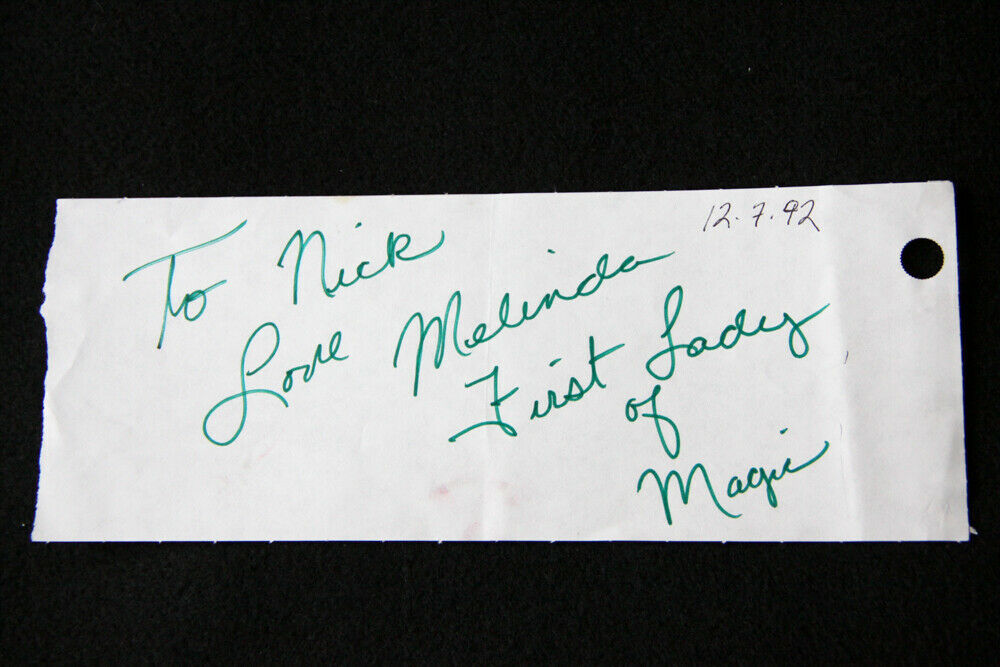 12.7.92
To Nick
Love Melinda
First Lady
of
Magic